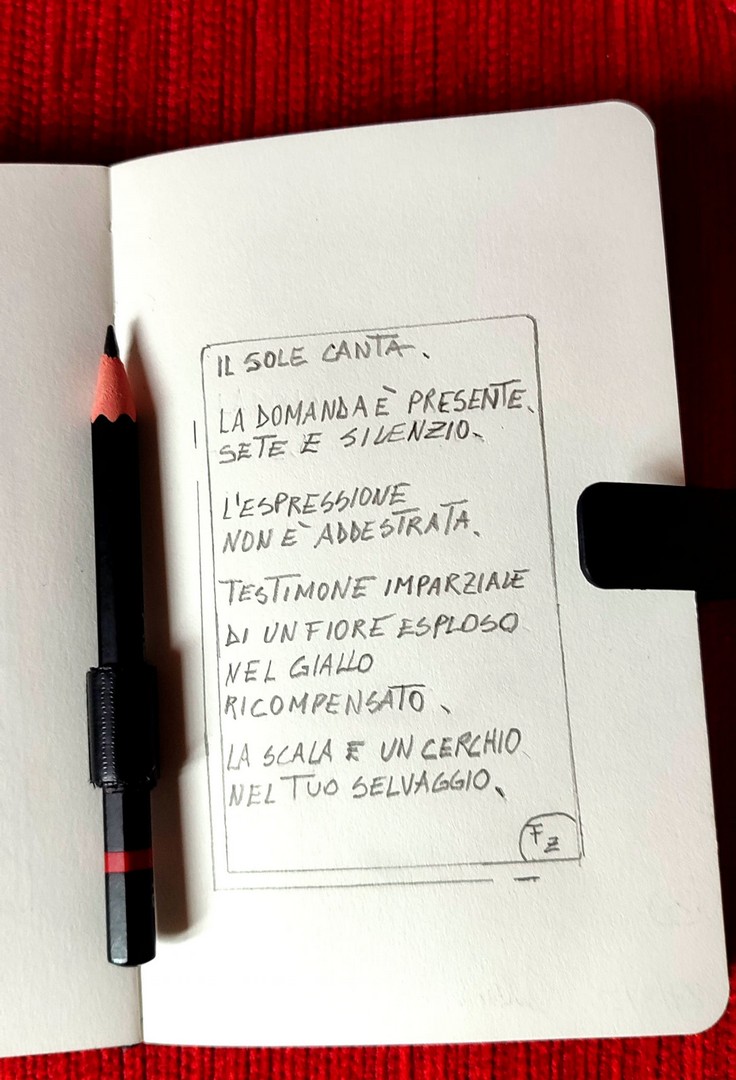 IL SOLE CANTA.
LA DOMANDA È PRESENTE.
SETE E SILENZIO.
L'ESPRESSIONE
NON È ADDESTRATA.
TESTIMONE IMPARZIALE
DI UN FIORE ESPLOSO
NEL GIALLO
RICOMPENSATO.
LA SCALA E UN CERCHIO
NEL TUO SELVAGGIO.
FZ